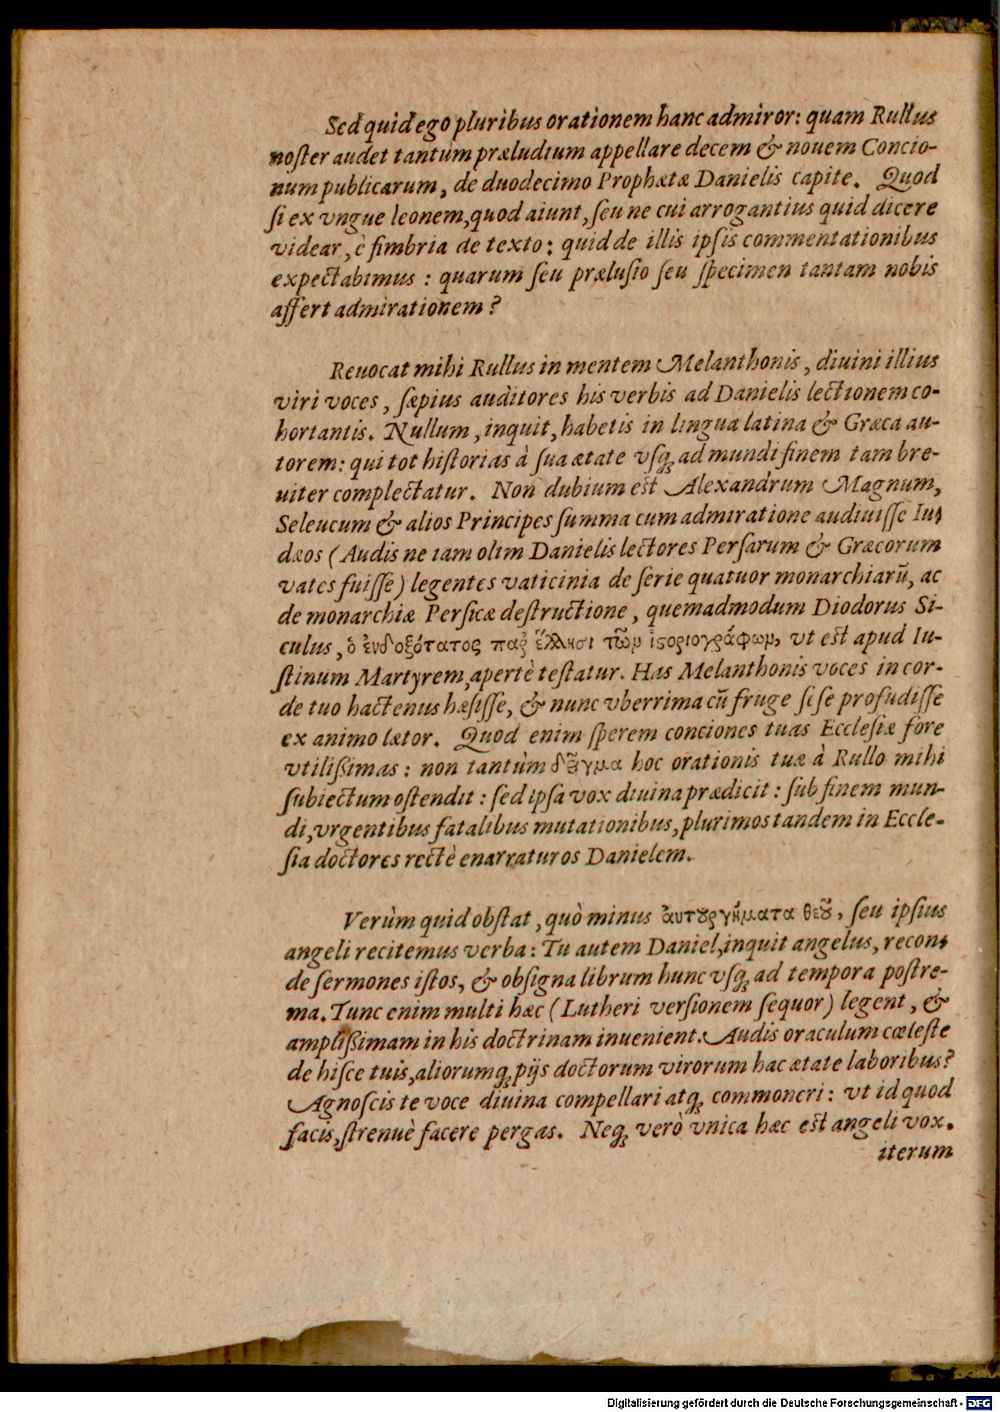 Sed quid ego pluribus orationem hanc admiror: quam Rullus
noſter audet tantùm præludium appellare decem & nouem Concio-
num publicarum, de duodecimo Prophetæ Danielis capite. Quod
ſi ex vngue leonem, quod aiunt, ſeu ne cui arrogantius quid dicere
videar, è fimbria de texto: quid de illis ipſis commentationibus
expectabimus: quarum ſeu præluſio ſeu ſpecimen tantam nobis
affert admirationem?
Reuocat mihi Rullus in mentem Melanthonis, diuini illius
viri voces, ſæpius auditores his verbis ad Danielis lectionem co-
hortantis. Nullum, inquit, habetis in lingua latina & Græca au-
torem: qui tot hiſtorias à ſua ætate vſq; ad mundi finem tam bre-
uiter complectatur. Non dubium eſt Alexandrum Magnum,
Seleucum & alios Principes ſumma cum admiratione audiuiſſe Iu-
dæos (Audis ne iam olim Danielis lectores Perſarum & Græcorum
vates fuiſſe) legentes vaticinia de ſerie quatuor monarchiarū, ac
de monarchiæ Perſicæ deſtructione, quemadmodum Diodorus Si-
culus, ὁ ἐνδοξότατος παρ' ἕλλησι τῶμ ἱςοριογράφωμ, vt eſt apud Iu-
ſtinum Martyrem, apertè teſtatur. Has Melanthonis voces in cor-
de tuo hactenus hæſiſſe, & nunc vberrima cū fruge ſeſe profudiſſe
ex animo lætor. Quod enim ſperem conciones tuas Eccleſiæ fore
vtiliſsimas: non tantùm δεῖγμα hoc orationis tuæ à Rullo mihi
ſubiectum oſtendit: ſed ipſa vox diuina prædicit: ſub finem mun-
di, vrgentibus fatalibus mutationibus, plurimos tandem in Eccle-
ſia doctores rectè enarraturos Danielem.
Verùm quid obſtat, quò minus ἀυτουργήματα θεοῦ, ſeu ipſius
angeli recitemus verba: Tu autem Daniel, inquit angelus, recon-
de ſermones iſtos, & obſigna librum hunc vſq; ad tempora poſtre-
ma. Tunc enim multi hæc (Lutheri verſionem ſequor) legent, &
ampliſsimam in his doctrinam inuenient. Audis oraculum cœleſte
de hiſce tuis, aliorumq; pijs doctorum virorum hac ætate laboribus?
Agnoſcis te voce diuina compellari atq; commoneri: vt id quod
facis, ſtrenuè facere pergas. Neq; verò vnica hæc eſt angeli vox.
iterum
Digitalisierung gefördert durch die Deutsche Forschungsgemeinschaft - DFG